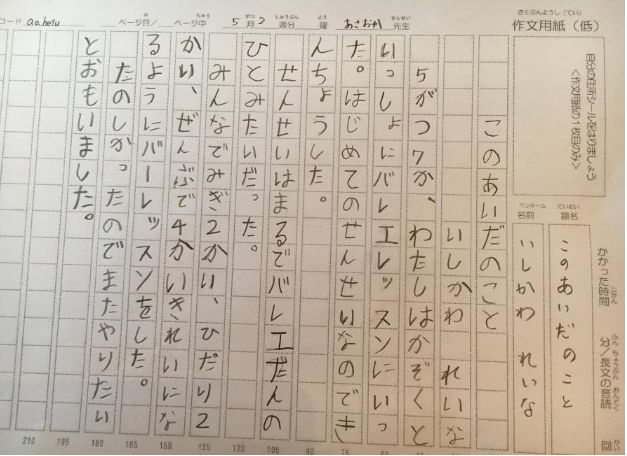 作文用紙（低）
コード a.a.hetu ページ目/ ページ中 5月2週分 曜 あさおか先生
自分の住所シールをはりましょう
＜作文用紙の1枚目のみ＞
かかった時間 分/長文の音読 回
題名 このあいだのこと
ペンネーム
名前 いしかわ れいな
このあいだのこと
いしかわ れいな
5がつ7か、わたしはかぞくと
いっしょにバレエレッスンにいっ
た。はじめてのせんせいなのでき
んちょうした。
せんせいはまるでバレエだんの
ひとみたいだった。
みんなでみぎ2かい、ひだり2
かい、ぜんぶで4かいきれいにな
るようにバーレッスンをした。
たのしかったのでまたやりたい
とおもいました。
45 60 75 90 105 120 135 150 165 180 195 210